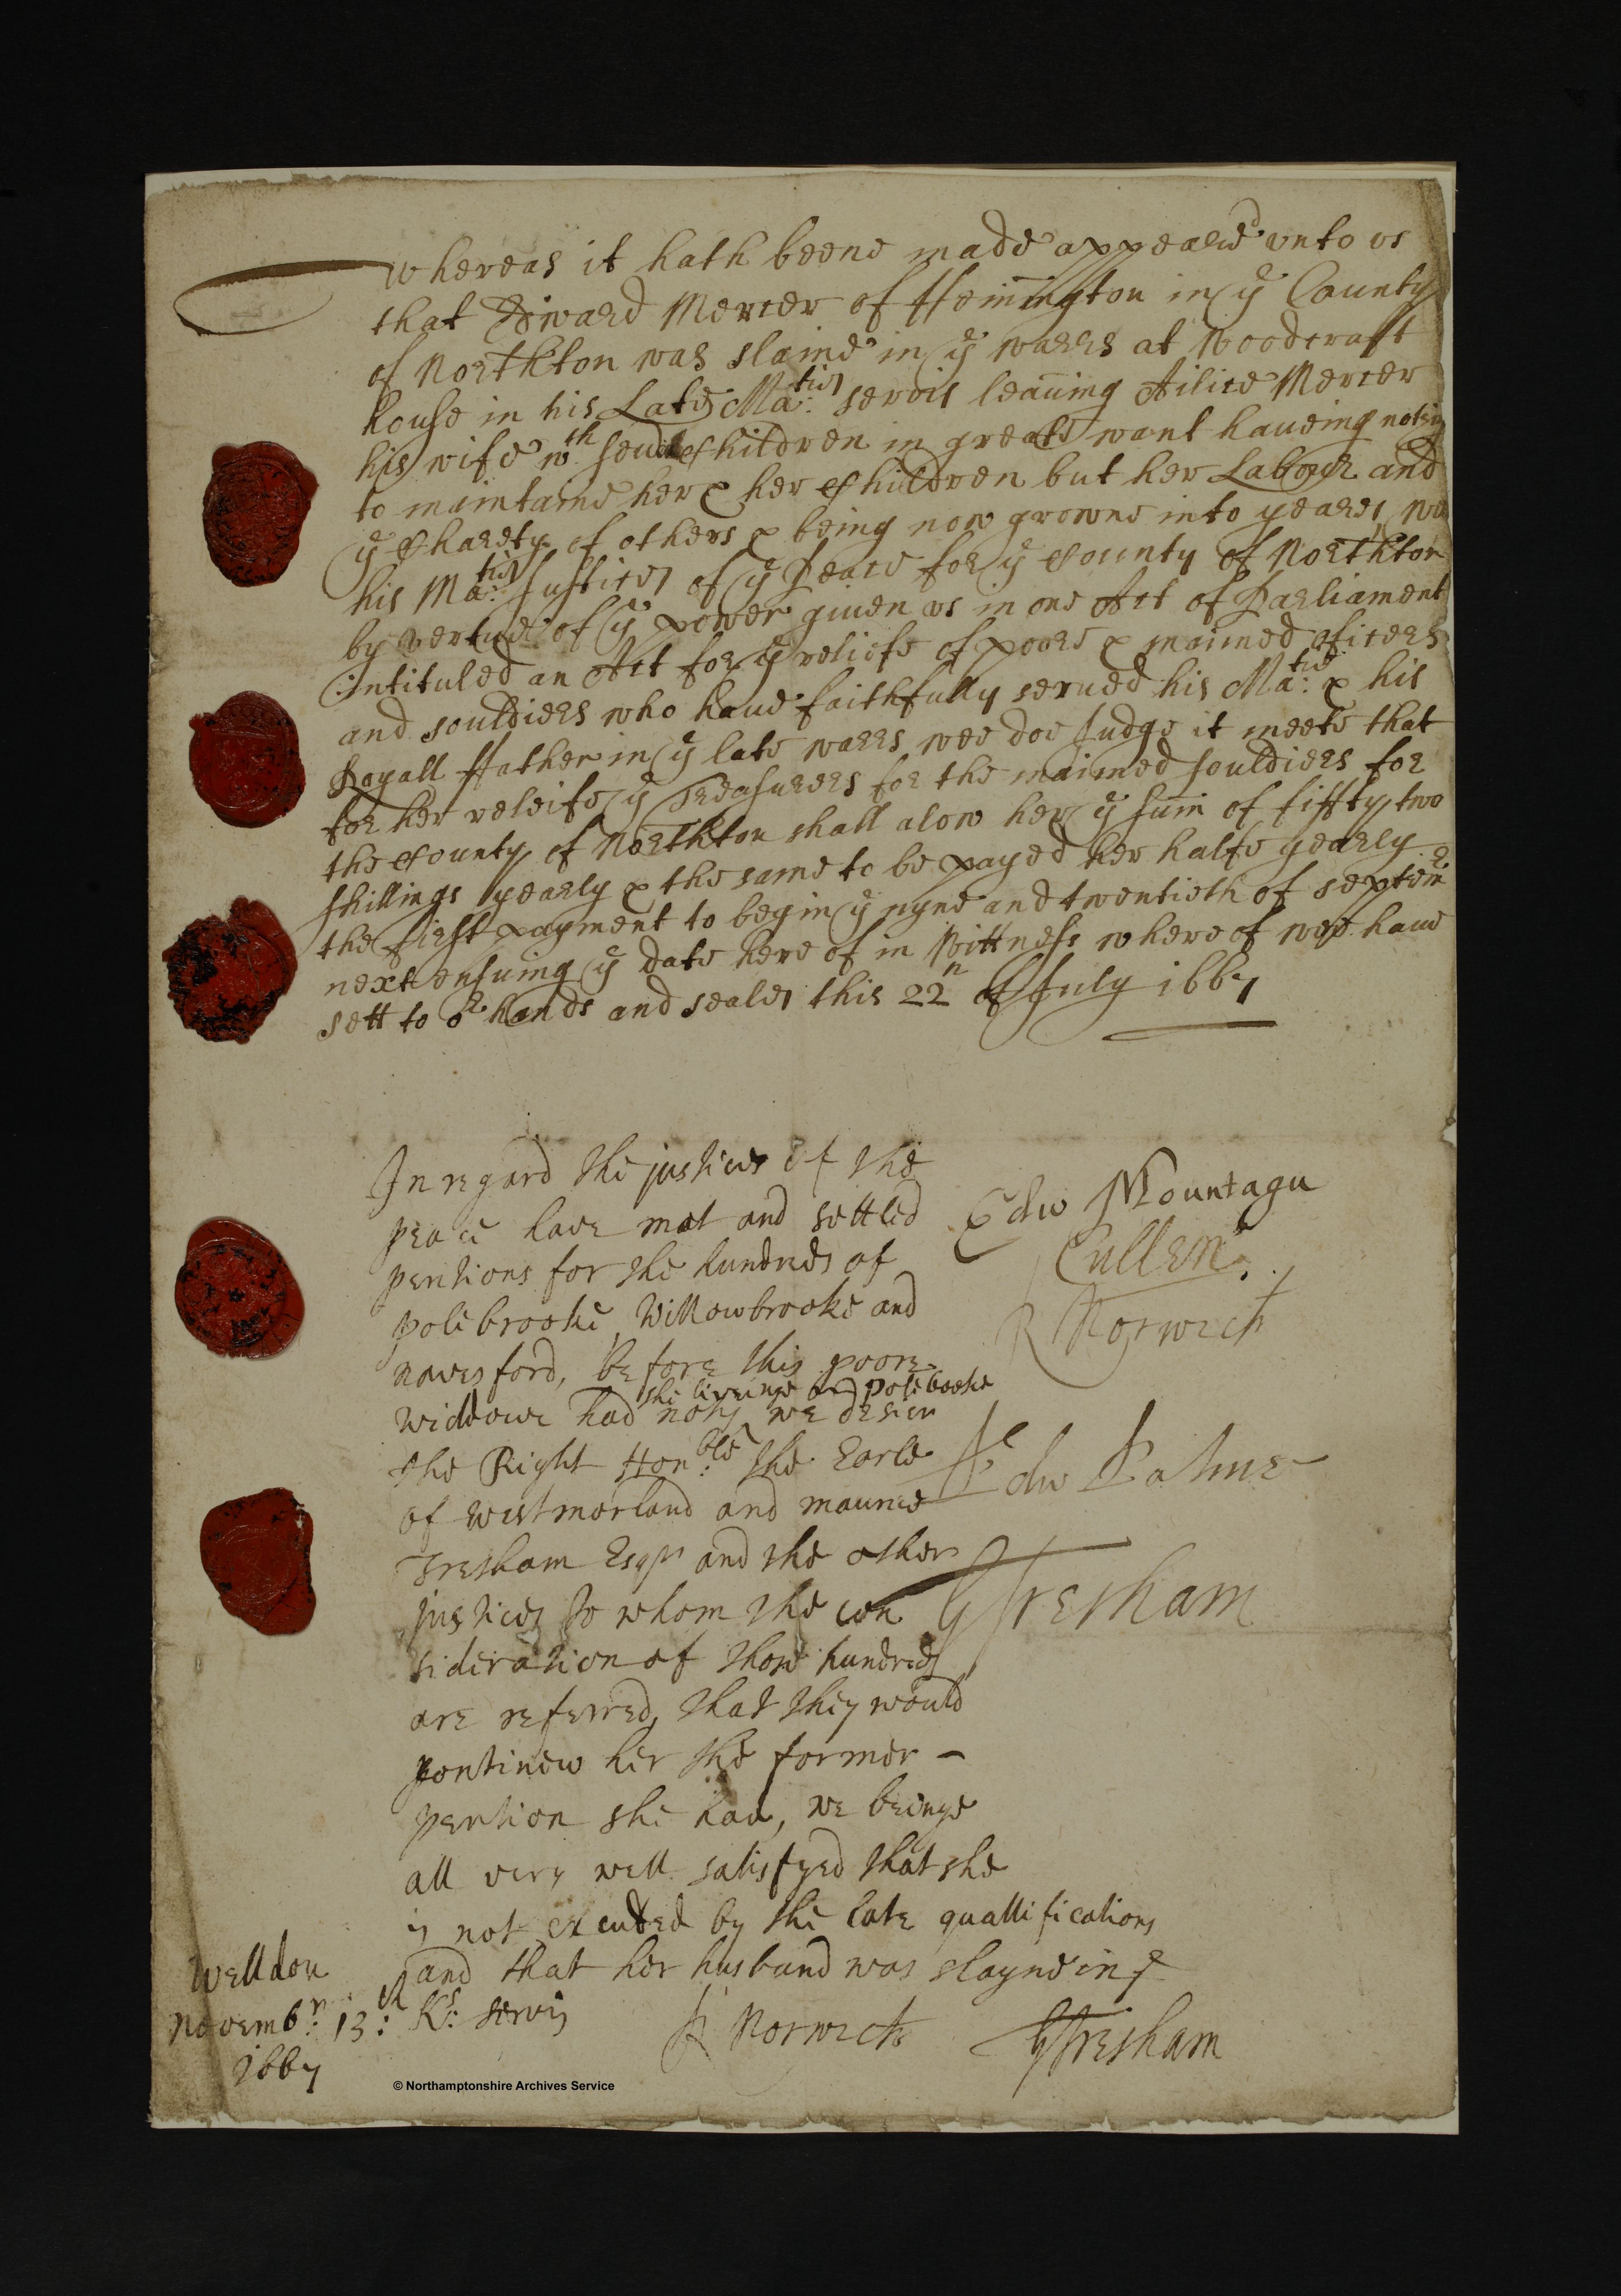 whereas it hath beene made appeared vnto vs
that Edward Mercer of Hemington in ye County
of Northton was slaine in ye warrs at Woodcraft
house in his Late Ma:ties servis leaving Ailice Mercer
his wife wth Children in greate want haueing
to maintaine her & her Children but her Labour and
ye Charety of others & being now growne into yeares, we
his Ma:ties Justices of ye Peace for ye County of Northton
by vertue of ye power given vs in one Act of Parliament
intituled an Act for ye reliefe of poore & maimed oficers
and souldiers who haue faithfully serued his Ma:tie & his
Royall ffather in ye late warrs wee doe Judge it meete that
for her releife ye Treasurers for the maimed souldiers for
the County of Northton shall alow her ye sum of fiffty two
shillings yearly & the same to be payed her halfe yearly
the first payment to begin ye nyne and twentieth of septemr
next ensuing ye date here of in Wittness where of wee haue
sett to or hands and seales this 22n of July 1667
In regard the justices of the
peace have met and settled
pentions for the hundreds of
polebrooke, Willowbrooke and
navesford, before this poore
she liveinge in polebrooke
widdowe had noty we desier
the Right Hon:ble the Earle
of westmorland and maurice
Tresham Esqr and the other
justices to whom the con
sideration of those hundreds
are referred, that they would
contineu her the former -
pention she had, we beinge
all very well satisfyed that she
is not excluded by the late quallifications
and that her husband was slayne in ye
Ks: servis
Edw Mountagu
Cullen
R Norwich
Edw Palmer
GTresham
R Norwich
GTresham
Welldon
Novembr: 13:th
1667
© Northamptonshire Archives Service